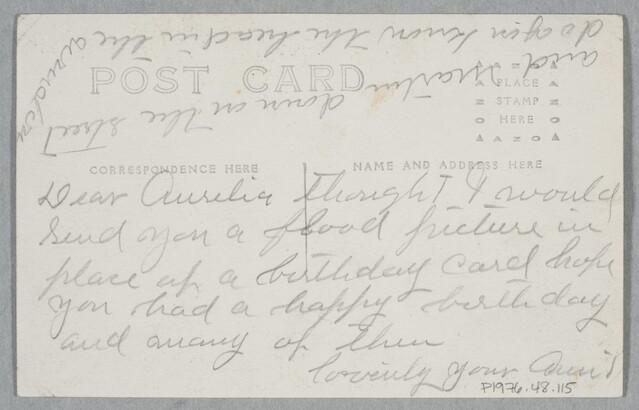 POST CARD
PLACE
STAMP
HERE
AZO
CORRESPONDENCE HERE
NAME AND ADDRESS HERE
Dear Aurelia thought I would
send you a flood picture in
place of a birthday card hope
you had a happy birthday
and many of them
lovenly your Aunt
know the head in the window
and Martin down on the street
P1976.48.115